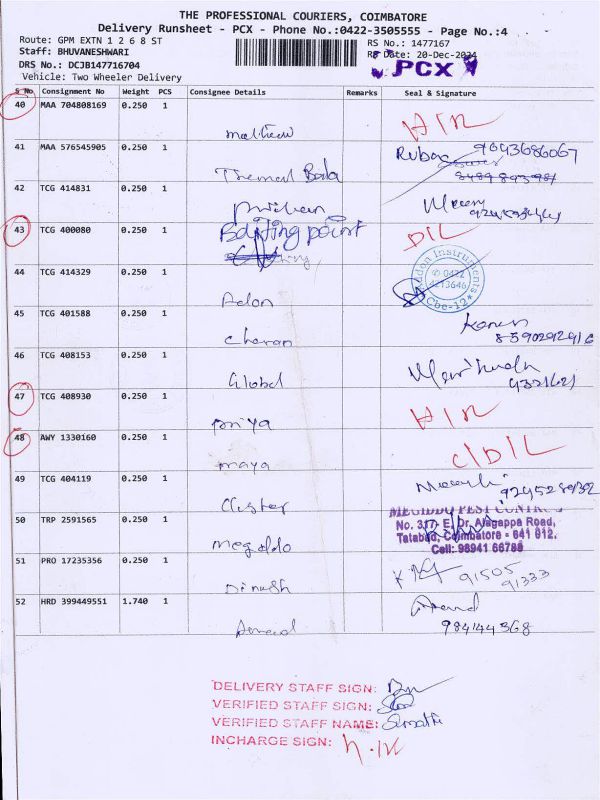 THE PROFESSIONAL COURIERS, COIMBATORE
Delivery Runsheet - PCX - Phone No.:0422-3505555 - Page No.:4
Route: GPM EXTN 1 2 6 8 ST
RS No.: 1477167
Staff: BHUVANESHWARI
RS Date: 20-Dec-2024
DRS No.: DCJB147716704
PCX
Vehicle: Two Wheeler Delivery
S No Consignment No Weight PCS Consignee Details Remarks Seal & Signature
40 MAA 704808169 0.250 1
Matthew
41 MAA 576545905 0.250 1
9643686067
42 TCG 414831 0.250 1
43 TCG 400080 0.250 1 point
D/L
44 TCG 414329 0.250 1
Addon Instruments
0422
4213646
Cbe-12
Adon
45 TCG 401588 0.250 1
Charan
8590292916
46 TCG 408153 0.250 1
Global
47 TCG 408930 0.250 1
Priya
48 AWY 1330160 0.250 1
C/D/L
Maya
49 TCG 404119 0.250 1
Cluster
50 TRP 2591565 0.250 1
MEGIDDO PEST CONTROL
No. 317- E, Dr. Alagappa Road,
Tatabad, Coimbatore - 641 012.
Cell: 98941 66786
Megiddo
51 PRO 17235356 0.250 1
91505
91333
Dinesh
52 HRD 399449551 1.740 1
Anand
984144368
DELIVERY STAFF SIGN:
VERIFIED STAFF SIGN:
VERIFIED STAFF NAME: Sumathi
INCHARGE SIGN: